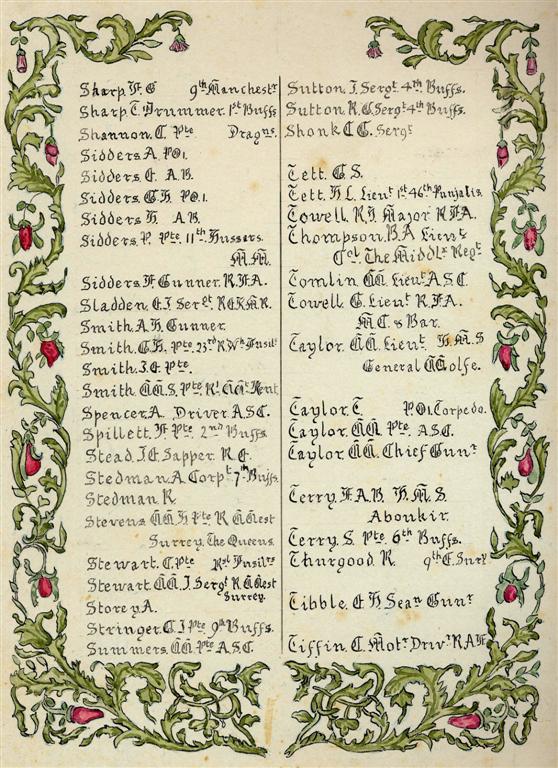 Sharp. F. G 9th Manchestr
Sharp. T. Drummer. 1st Buffs
Shannon. C Pte Dragns.
Sidders. A. PO1.
Sidders. E. A.B.
Sidders. G.H. PO.1.
Sidders. H. A.B.
Sidders. P. Pte 11th Hussars.
M.M.
Sidders. F Gunner. R.F.A.
Sladden. E.J. Sergt REKMR.
Smith. A.H. Gunner.
Smith. G.H. Pte 23rd
Smith. J.E. Pte.
Smith. W.S. Pte Rl Wt Kent
Spencer. A. Driver A.S.C.
Spillett. F. Pte 2nd Buffs
Stead. J.E. Sapper. R.E.
Stedman. A. Corpt 7th Buffs.
Stedman R
Stevens W.H Pte R West
Surrey. The Queens.
Stewart. C. Pte Ryl Fusilrs
Stewart. W. J. Sergt R West
Surrey.
Storey A.
Stringer. C.J Pte 9th Buffs.
Summers. W Pte A.S.C.
Sutton. J. Sergt. 4th Buffs.
Sutton. R.C. Sergt 4th Buffs.
Shonk C G. Sergt
Tett. G S.
Tett. H L. Lieut 1st 46th Punjabis.
Towell. R.H Major R.F.A.
Thompson. B.A Lieut
The Middlx Regt
Tomlin. W. Lieut A.S.C.
Towell G. Lieut R.F.A.
M.C. & Bar.
Taylor. W. Lieut H.M.S
General Wolfe.
Taylor. T. PO1. Torpedo.
Taylor. W. Pte A.S.C.
Taylor W. Chief Gunr
Terry. F.A.B. H.M.S.
Aboukir.
Terry. S. Pte 6th Buffs.
Thurgood. R. 9th E. Sury.
Tibble. E H Sean Gunr
Tiffin. C. Motr Drivr R.A.F